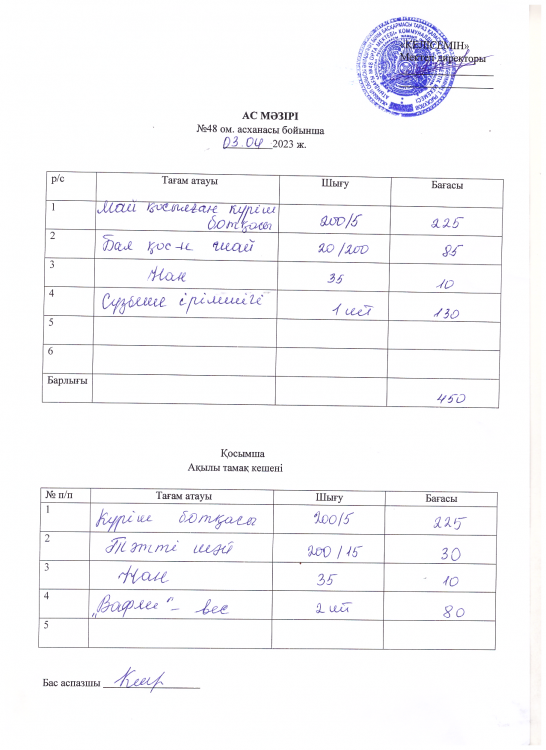 «КЕЛІСЕМІН»
Мектеп директоры
АС МӘЗІРІ
№48 ом. асханасы бойынша
03.04 2023 ж.
р/с Тағам атауы Шығу Бағасы
1 Май қосылған күріш ботқасы 200/5 225
2 Бал қос-н шай 20/200 85
3 Нан 35 10
4 Сүзбеше ірімшігі 1 шт 130
5
6
Барлығы 450
Қосымша
Ақылы тамақ кешені
№ п/п Тағам атауы Шығу Бағасы
1 Күріш ботқасы 200/5 225
2 Тәтті шәй 200/15 30
3 Нан 35 10
4 „Вафли"- вес 2 шт 80
5
Бас аспазшы